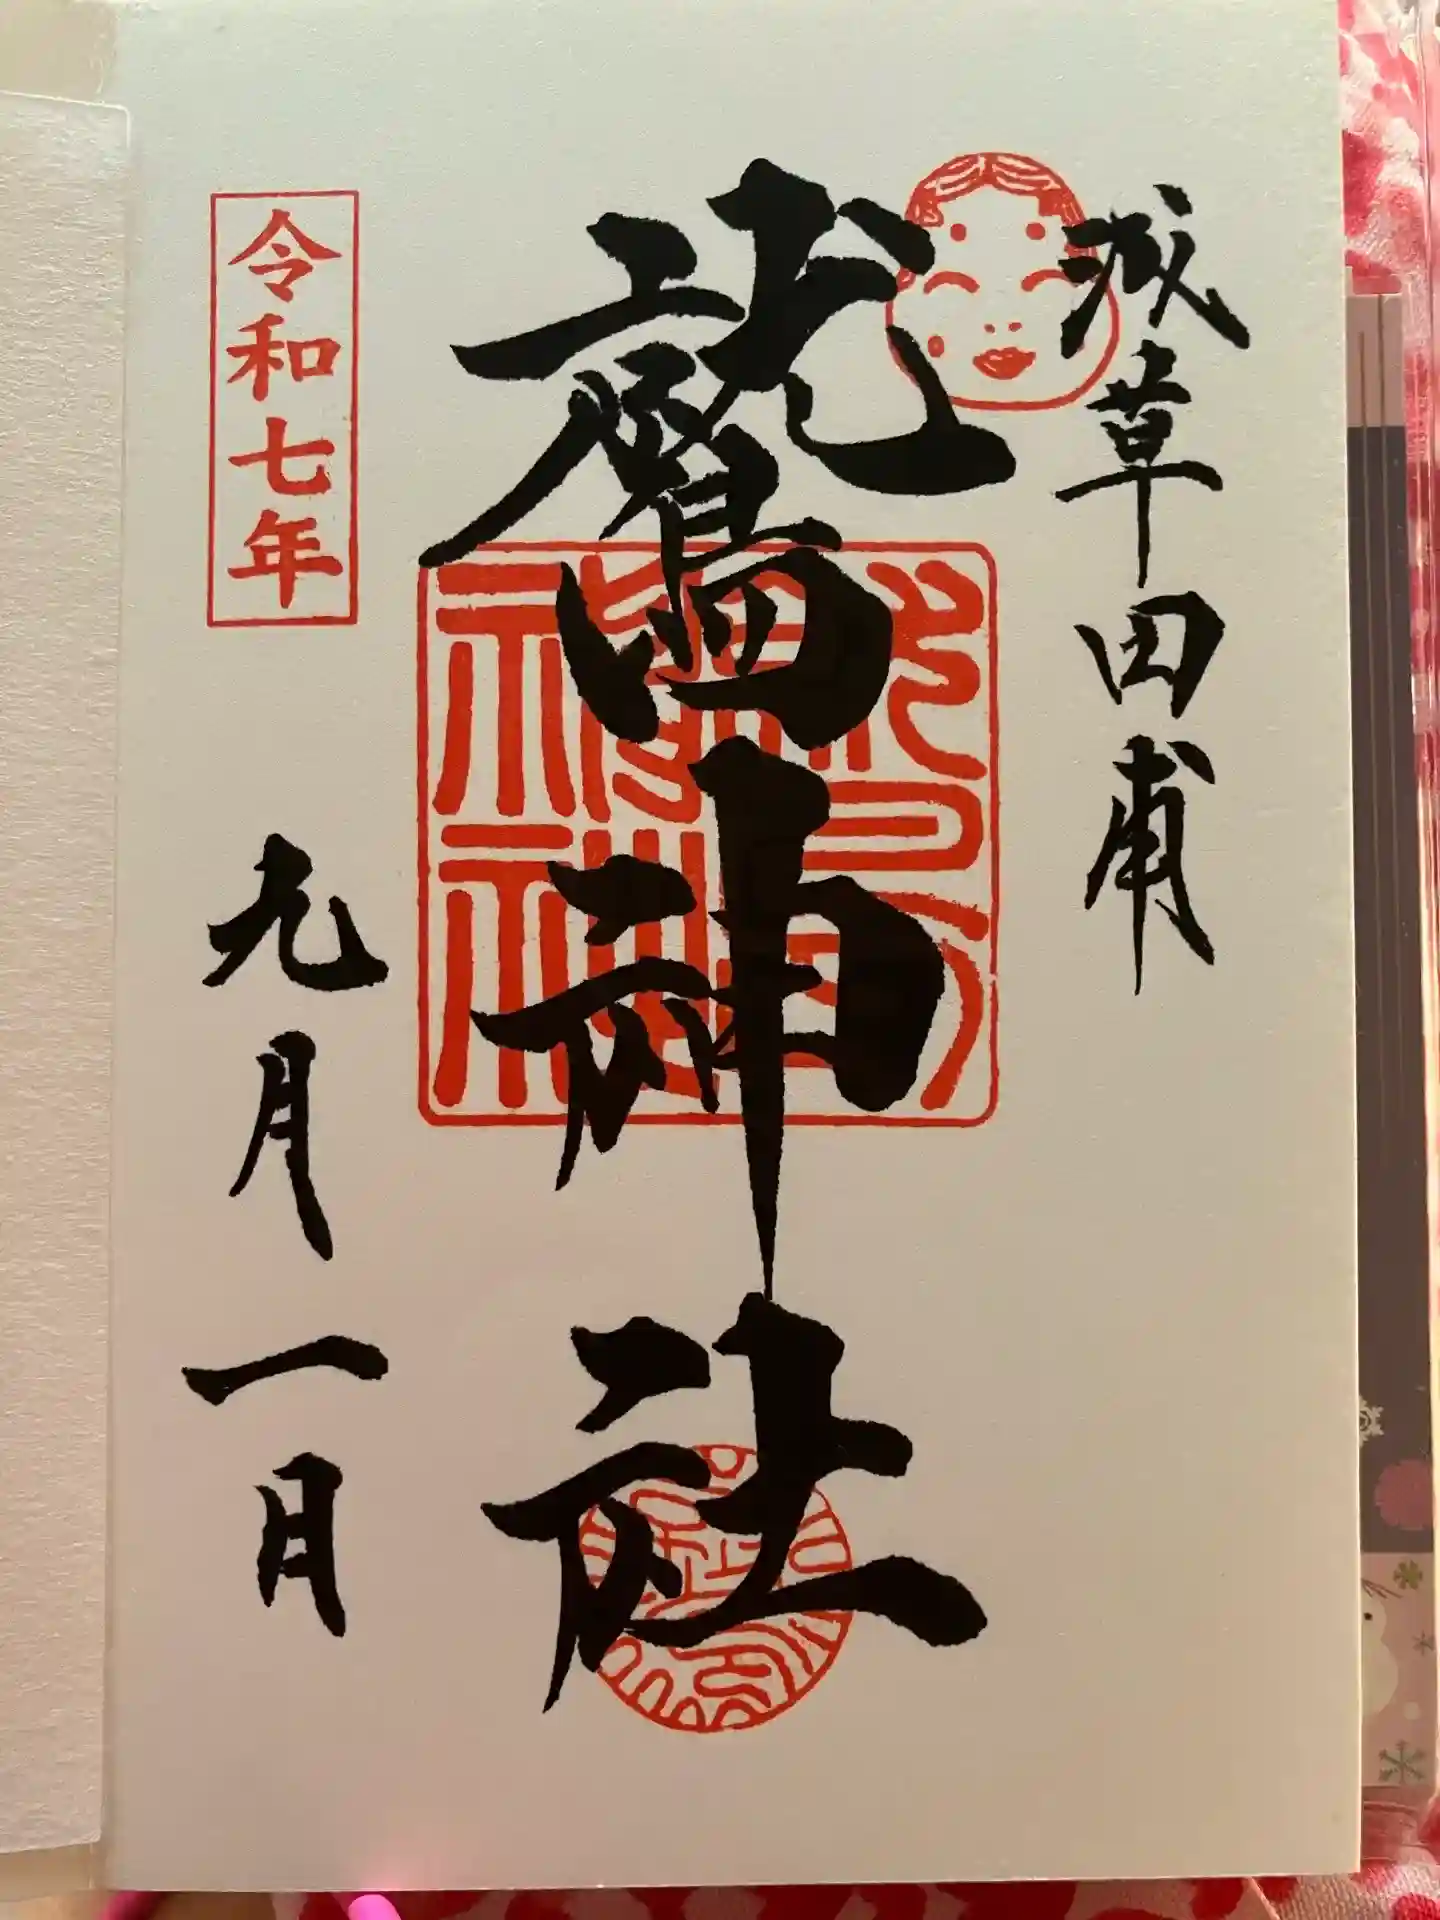 浅草田甫
鷲神社
令和七年
九月一日